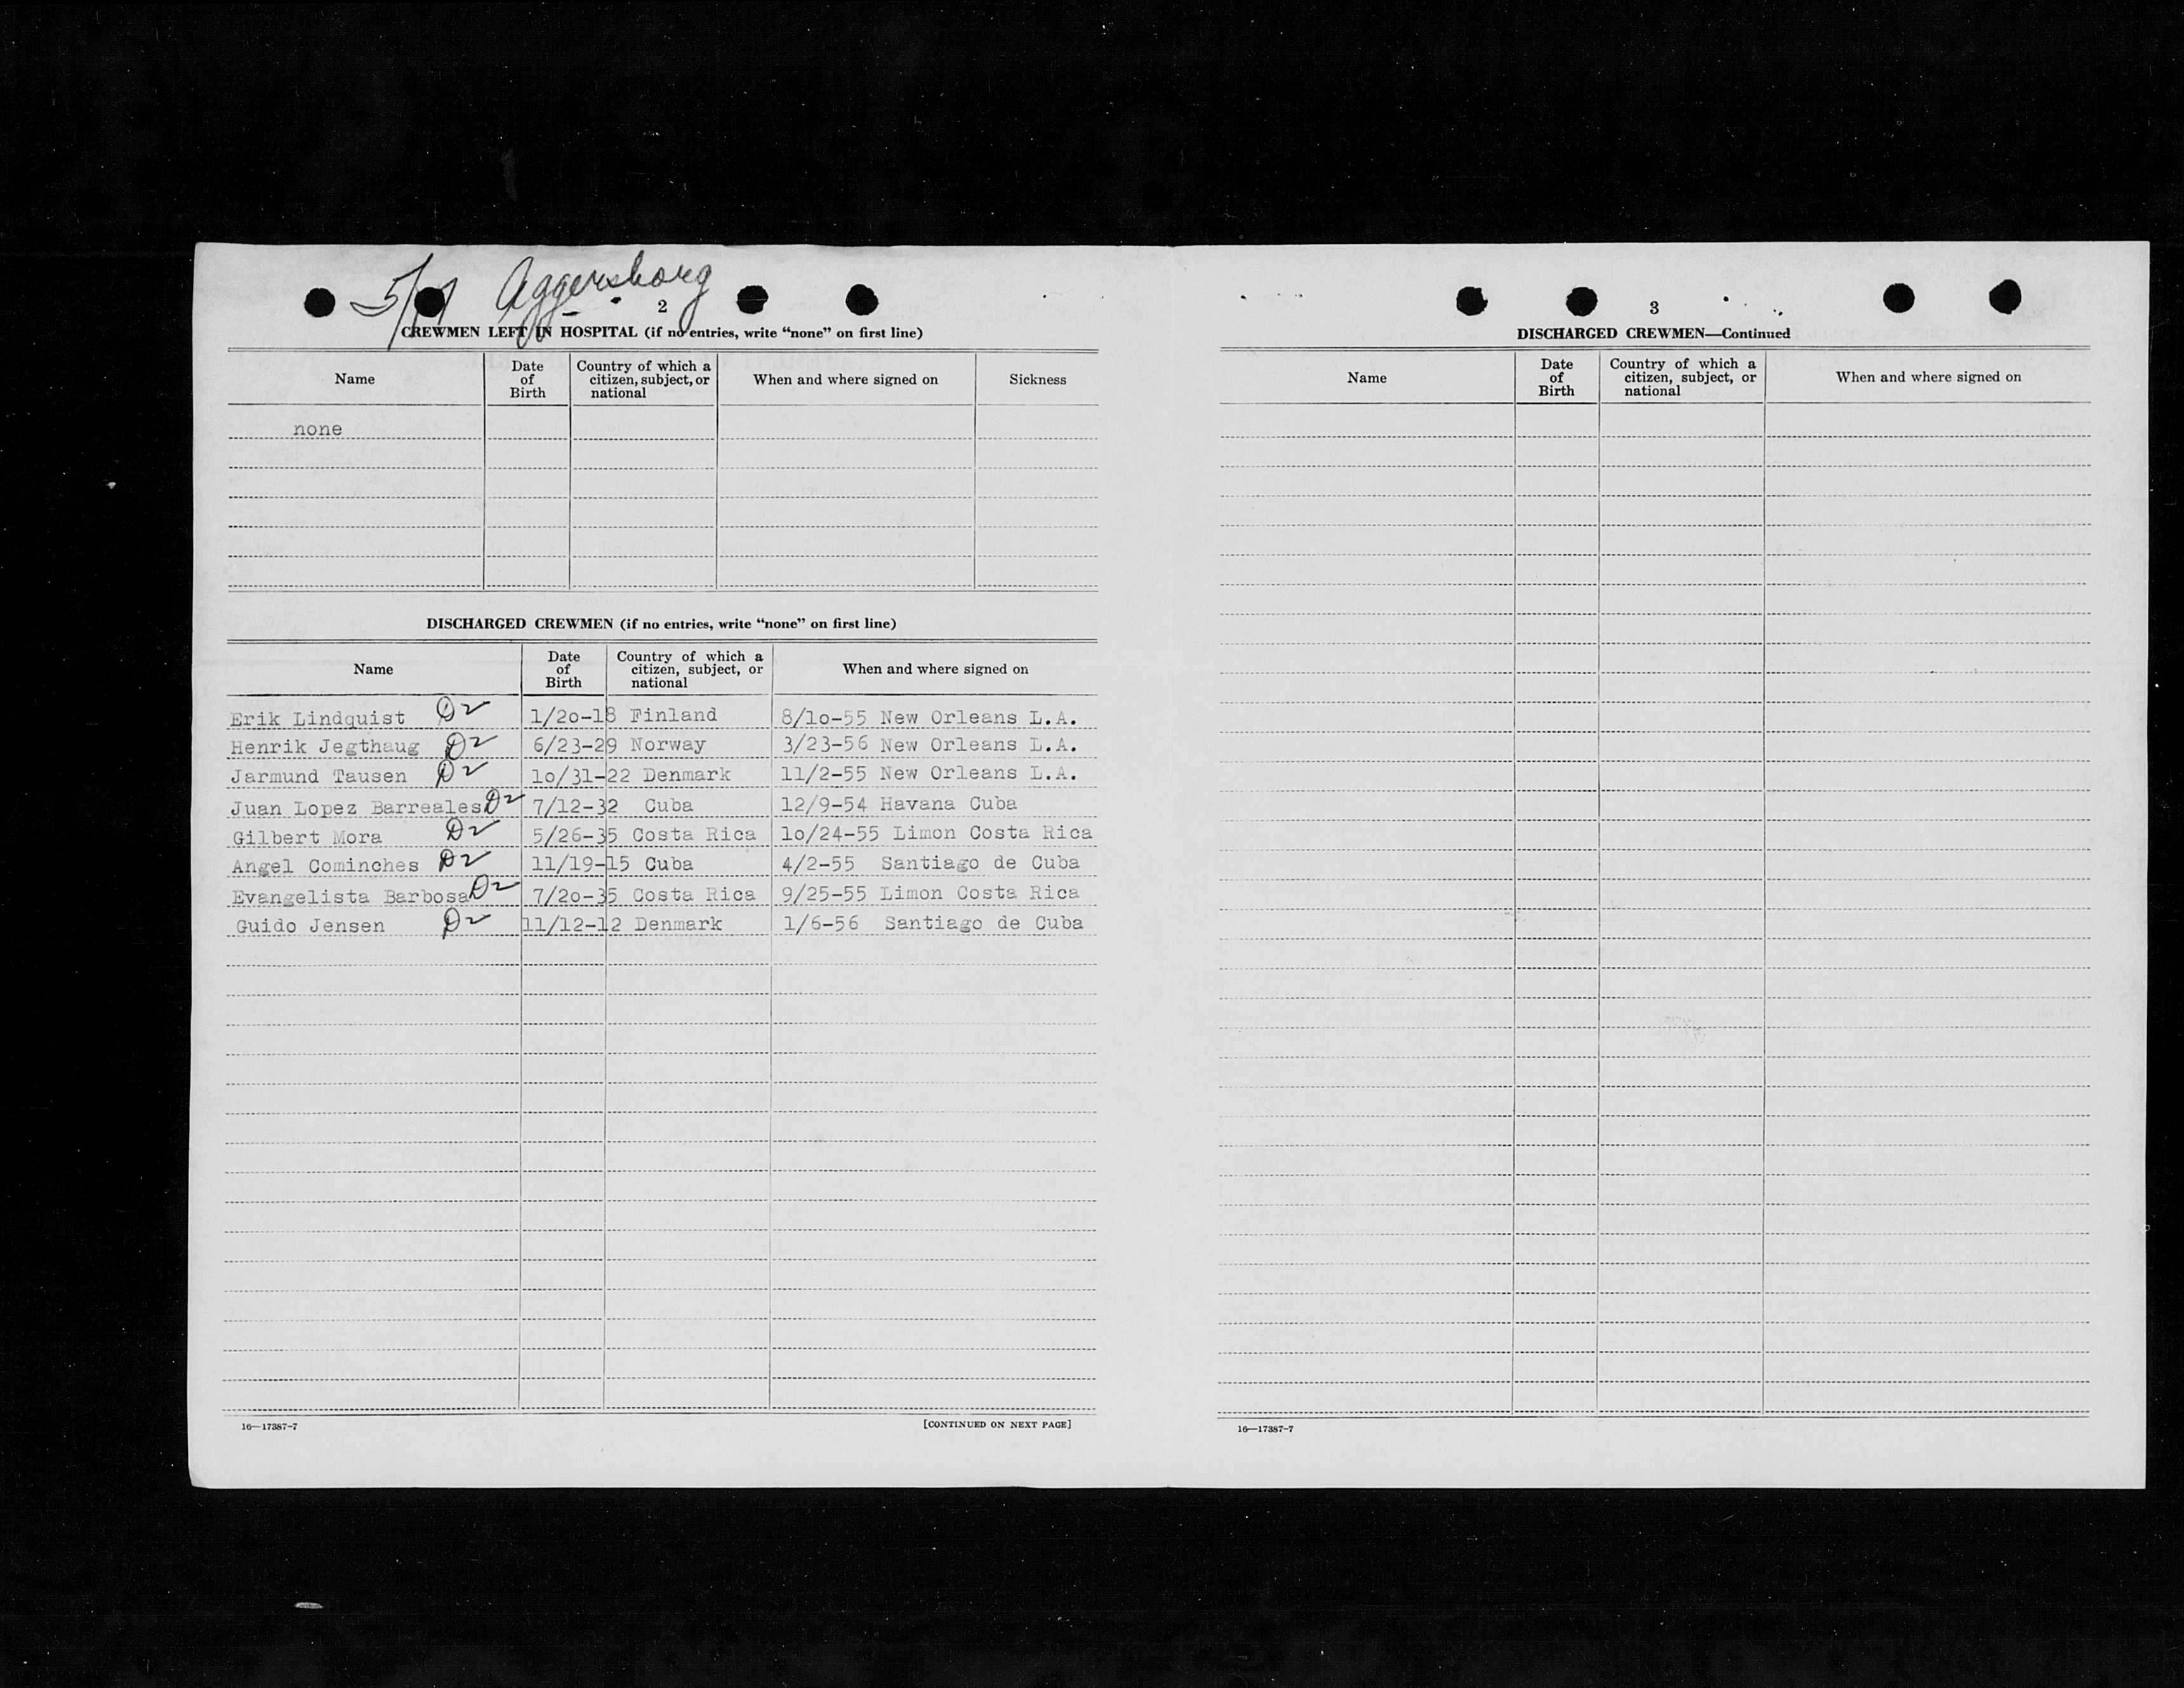 Aggersborg
2
CREWMEN LEFT IN HOSPITAL (if no entries, write "none" on first line)
Name Date of Birth Country of which a citizen, subject, or national When and where signed on Sickness
none
DISCHARGED CREWMEN (if no entries, write "none" on first line)
Name Date of Birth Country of which a citizen, subject, or national When and where signed on
Erik Lindquist D2 1/20-18 Finland 8/10-55 New Orleans L.A.
Henrik Jegthaug D2 6/23-29 Norway 3/23-56 New Orleans L.A.
Jarmund Tausen D2 10/31-22 Denmark 11/2-55 New Orleans L.A.
Juan Lopez Barreales D2 7/12-32 Cuba 12/9-54 Havana Cuba
Gilbert Mora D2 5/26-35 Costa Rica 10/24-55 Limon Costa Rica
Angel Cominches D2 11/19-15 Cuba 4/2-55 Santiago de Cuba
Evangelista Barbosa D2 7/20-35 Costa Rica 9/25-55 Limon Costa Rica
Guido Jensen D2 11/12-12 Denmark 1/6-56 Santiago de Cuba
16—17387-7 [CONTINUED ON NEXT PAGE]
3
DISCHARGED CREWMEN—Continued
Name Date of Birth Country of which a citizen, subject, or national When and where signed on
16—17387-7